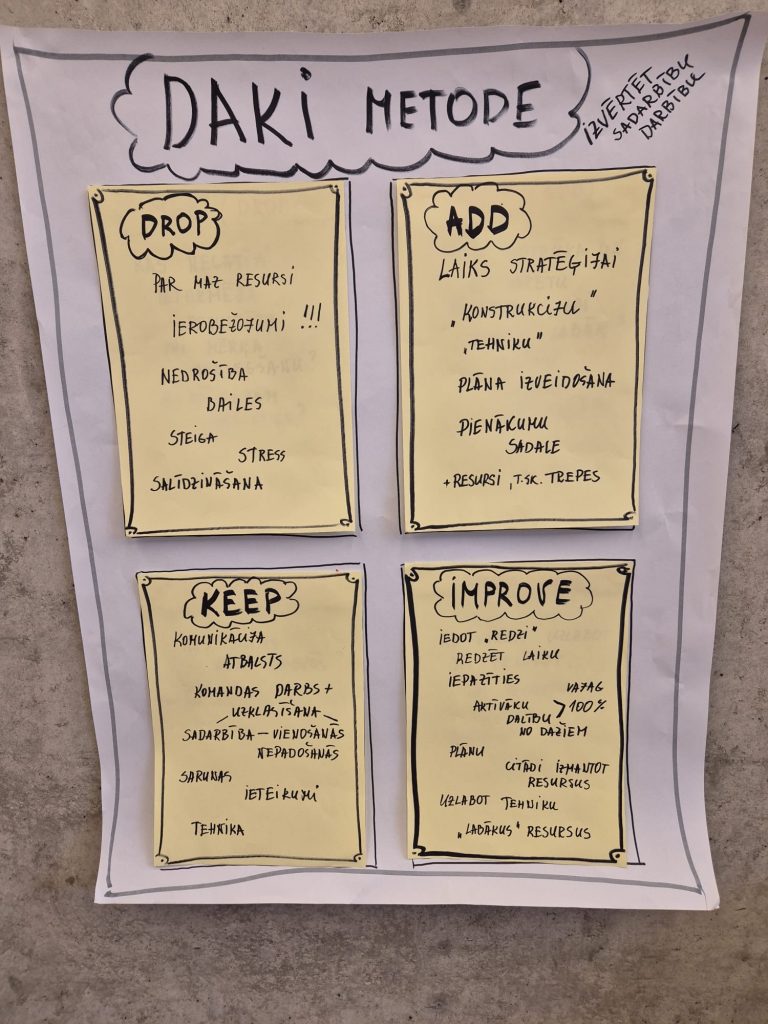 DAKI METODE
IZVĒRTĒT
SADARBĪBU
DARBĪBU
DROP
PAR MAZ RESURSI
IEROBEŽOJUMI !!!
NEDROŠĪBA
BAILES
STEIGA
STRESS
SALĪDZINĀŠANA
ADD
LAIKS STRATĒĢIJAI
„KONSTRUKCIJU"
„TEHNIKU"
PLĀNA IZVEIDOŠANA
PIENĀKUMU
SADALE
+ RESURSI, T.SK. TREPES
KEEP
KOMUNIKĀCIJA
ATBALSTS
KOMANDAS DARBS +
UZKLASĪŠANA
SADARBĪBA – VIENOŠANĀS
NEPADOŠANĀS
SARUNAS
IETEIKUMI
TEHNIKA
IMPROVE
IEDOT „REDZI"
REDZĒT LAIKU
IEPAZĪTIES
VAJAG
AKTĪVĀKU > 100%
DALĪBU
NO DAŽIEM
PLĀNU
CITĀDI IZMANTOT
RESURSUS
UZLABOT TEHNIKU
„LABĀKUS" RESURSUS